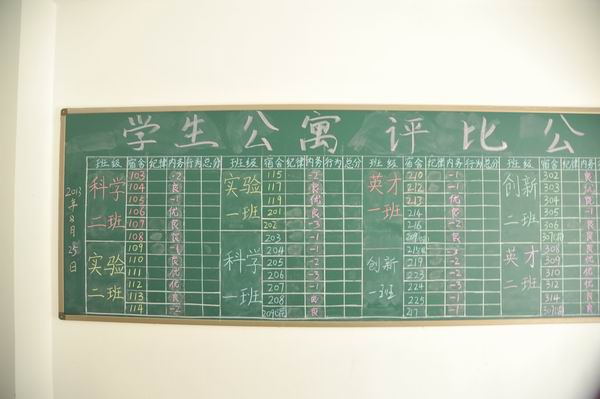 学生公寓评比公
2013年8月25日
班级 宿舍 纪律 内务 行为 总分 班级 宿舍 纪律 内务 行为 总分 班级 宿舍 纪律 内务 行为 总分 班级 宿舍 纪律 内务
科学二班
103 -2
104 良
105 -1
106 优
107 良
108 良
实验二班
109 -1
110 优
111 优
112 优
113 良
114 -2
实验一班
115 -2
117 良
119 优
201 优
202 -3
科学一班
203 -1
204 -1
205 -2
206 -3
207 -1
208 良
209 良
英才一班
210 -1
212 -1
213 优
214 -1
216 -2
创新一班
219 -2
223 -2
224 -3
225 -1
217 -1
创新二班
302
303
304
305
306
英才二班
308
309
310
312
314